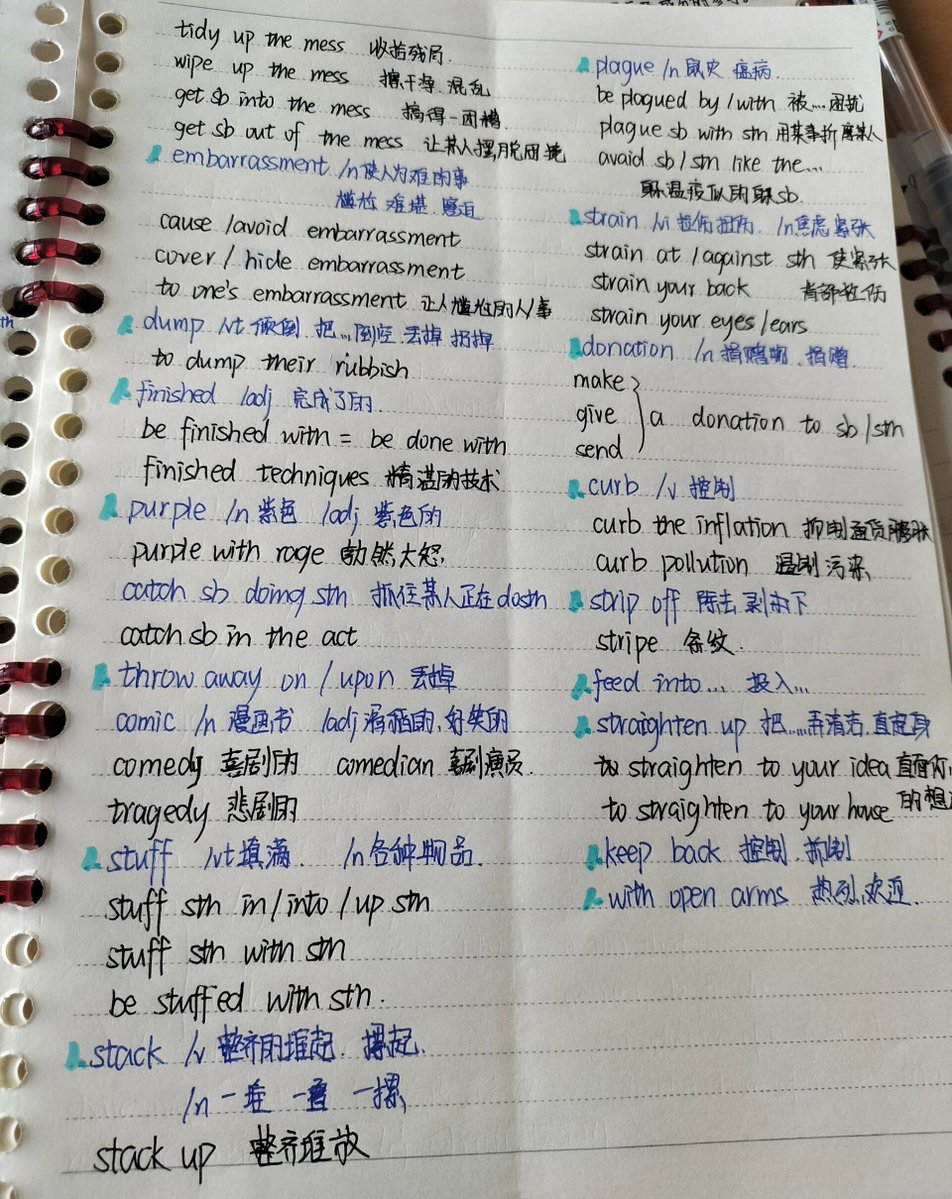 tidy up the mess 收拾残局.
wipe up the mess 擦干净.混乱
get sb into the mess 搞得一团糟.
get sb out of the mess 让某人摆脱困境
embarrassment /n 使人为难的事
尴尬 难堪 窘迫
cause /avoid embarrassment
cover / hide embarrassment
to one's embarrassment 让人尴尬的人/事
dump /vt 倾倒.把...倒空.丢掉.扔掉
to dump their rubbish
finished /adj 完成了的
be finished with = be done with
finished techniques 精湛的技术
purple /n 紫色 /adj 紫色的
purple with rage 勃然大怒.
catch sb doing sth 抓住某人正在do sth
catch sb in the act
throw away on / upon 丢掉
comic /n 漫画书 /adj 滑稽的.好笑的
comedy 喜剧的 comedian 喜剧演员.
tragedy 悲剧的
stuff /vt 填满. /n 各种物品.
stuff sth in / into / up sth
stuff sth with sth
be stuffed with sth.
stack /v 整齐的堆起.摞起.
/n 一堆 一叠 一摞
stack up 整齐堆放
plague /n 鼠疫 瘟病.
be plagued by / with 被....困扰
plague sb with sth 用某事折磨某人
avaid sb / sth like the...
躲瘟疫似的躲sb.
strain /vi 拉伤 扭伤. /n 焦虑 紧张
strain at / against sth 使紧张
strain your back 背部拉伤
strain your eyes / ears
donation /n 捐赠物.捐赠.
make
give a donation to sb / sth
send
curb /v 控制
curb the inflation 抑制通货膨胀
curb pollution 遏制污染
strip off 除去 剥下
stripe 条纹.
feed into... 投入...
straighten up 把....弄清洁.直起身
to straighten to your idea 直面你
的想
to straighten to your house
keep back 控制.抑制
with open arms 热烈欢迎.